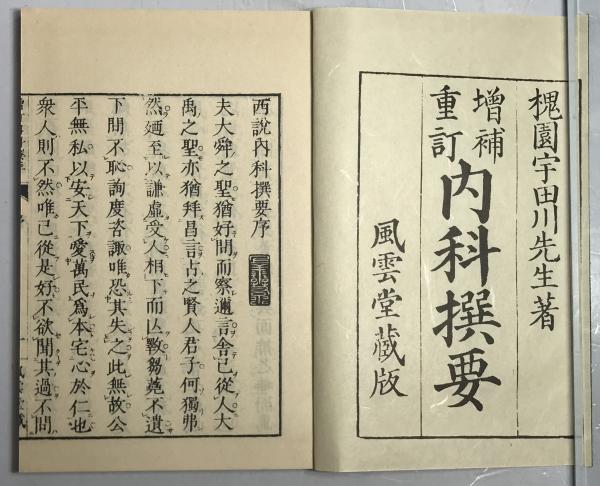 槐園宇田川先生著
增補
重訂
內科撰要
風雲堂藏版
西說內科撰要序
夫大舜之聖猶好問而察邇言舍己從人大
禹之聖亦猶拜昌言古之賢人君子何獨弗
然廼至以謙虛受人相下而亾斁芻蕘不遺
下問不恥詢度咨諏唯恐其失之此無故公
平無私以安天下愛萬民爲本宅心於仁也
衆人則不然唯己從是好不欲聞其過不問